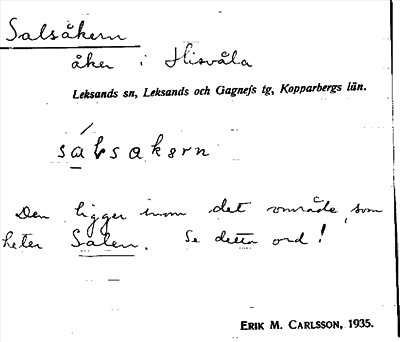 Salsåkern
åker i Hisvåla
Leksands sn, Leksands och Gagnefs tg, Kopparbergs län.
salsakern
Den ligger inom det område, som
heter Salen. Se detta ord!
ERIK M. CARLSSON, 1935.